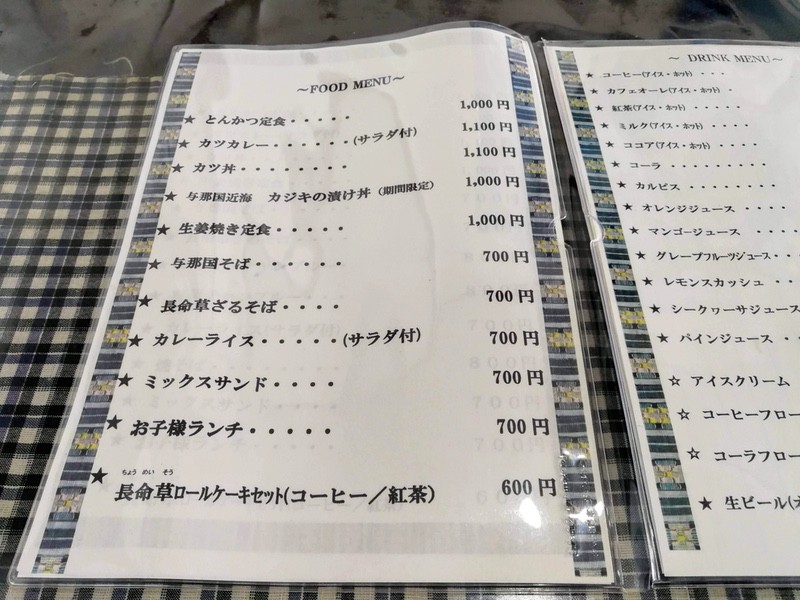 ～FOOD MENU～
★ とんかつ定食・・・・・ 1,000円
★ カツカレー・・・・・・・(サラダ付) 1,100円
★ カツ丼・・・・・・・ 1,100円
★ 与那国近海 カジキの漬け丼（期間限定） 1,000円
★ 生姜焼き定食・・・・・ 1,000円
★ 与那国そば・・・・・・ 700円
★ 長命草ざるそば・・・・ 700円
★ カレーライス・・・・・(サラダ付) 700円
★ ミックスサンド・・・・ 700円
★ お子様ランチ・・・・・ 700円
ちょう めい そう
★ 長命草ロールケーキセット(コーヒー／紅茶) 600円
～ DRINK MENU～
★ コーヒー(アイス・ホット) ・・・
★ カフェオーレ(アイス・ホット) ・
★ 紅茶(アイス・ホット) ・・・・・
★ ミルク(アイス・ホット) ・・・・
★ ココア(アイス・ホット) ・・・・
★ コーラ ・・・・・・・・・
★ カルピス ・・・・・・・・
★ オレンジジュース ・・・・
★ マンゴージュース ・・・・
★ グレープフルーツジュース・・・
★ レモンスカッシュ ・・
★ シークヮーサジュース
★ パインジュース ・・
☆ アイスクリーム
☆ コーヒーフロー
☆ コーラフロー
★ 生ビール(